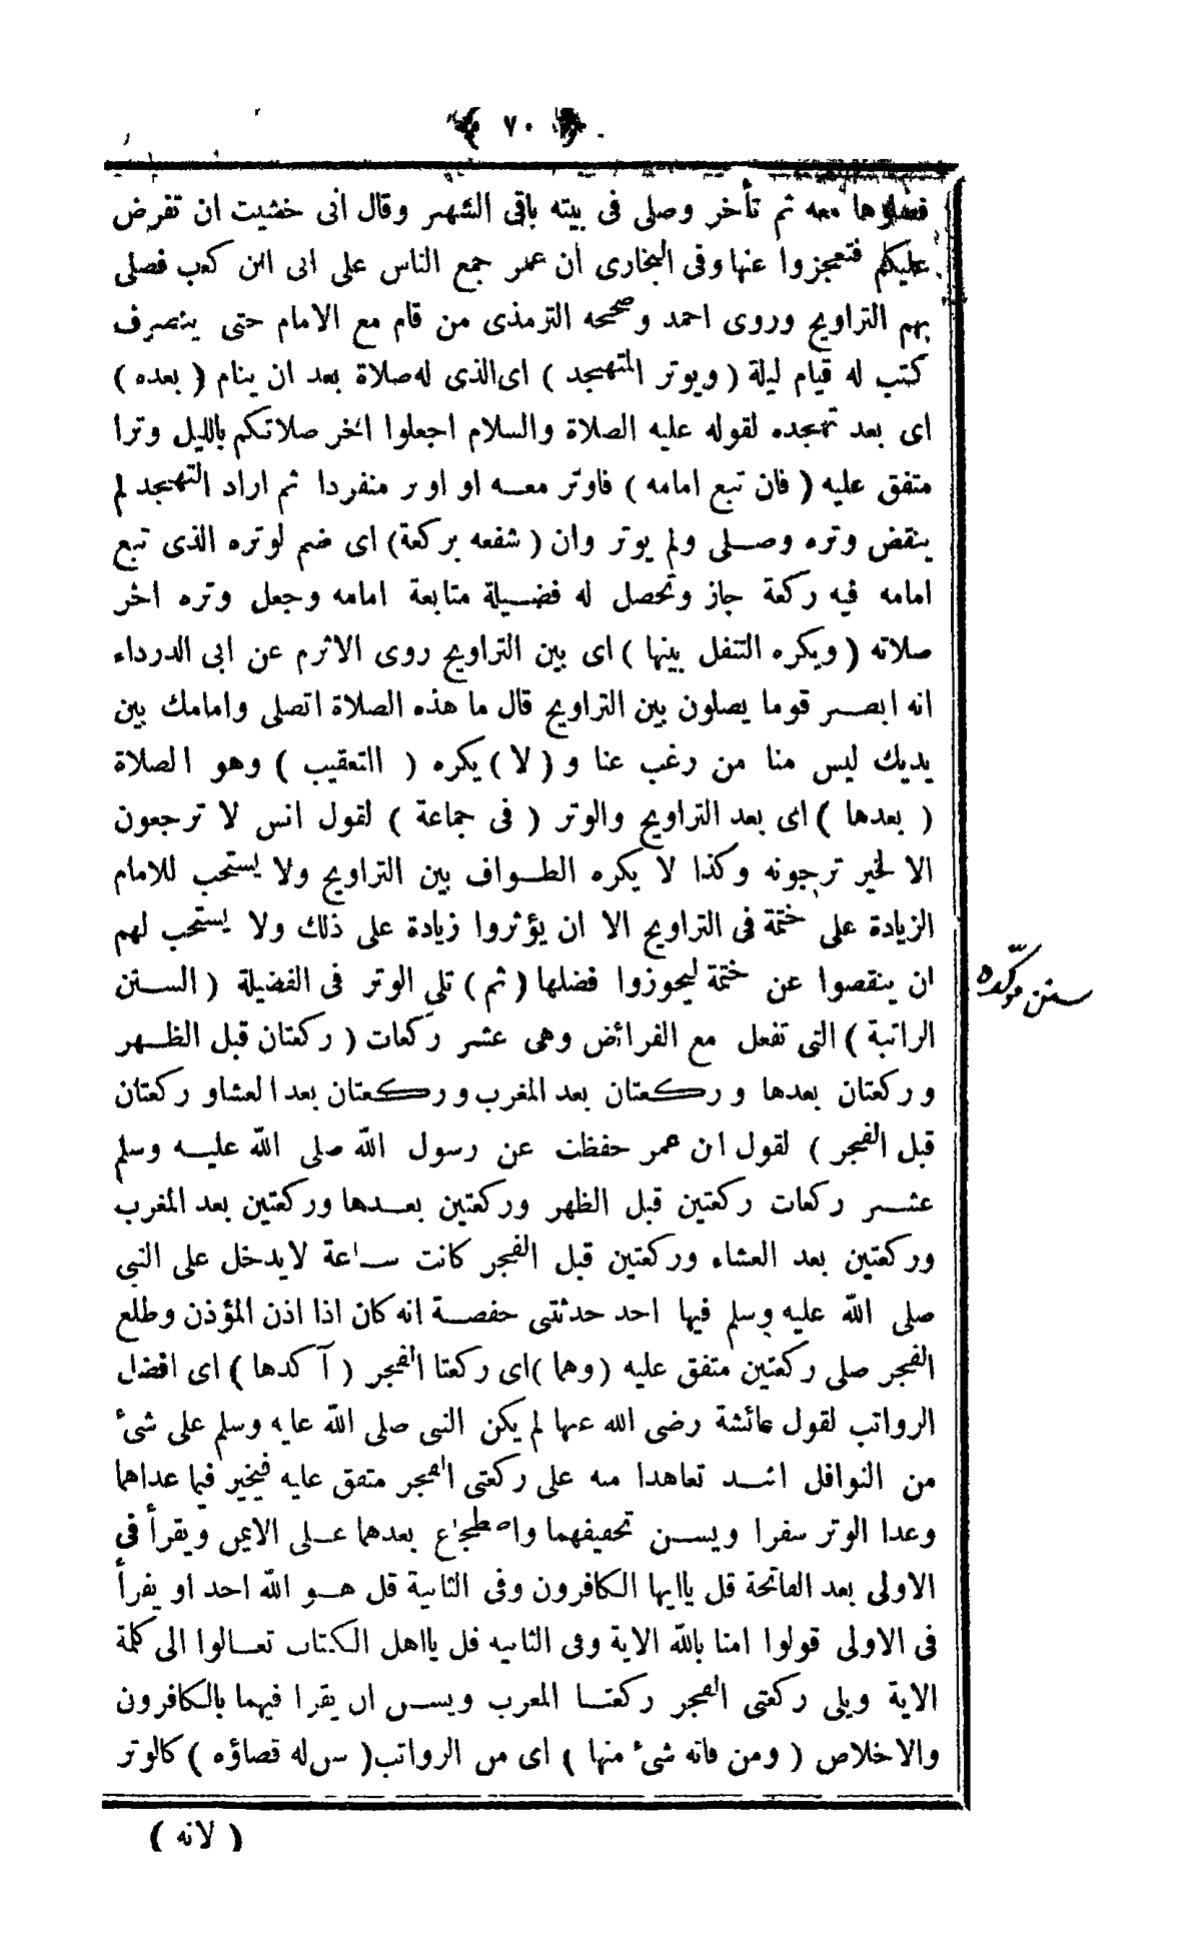 ٧٠
فصلوها معه ثم تأخر وصلى فى بيته باقى الشهر وقال انى خشيت ان تفرض
عليكم فتعجزوا عنها وفى البخارى ان عمر جمع الناس على ابى ابن كعب فصلى
بهم التراويح وروى احمد وصححه الترمذى من قام مع الامام حتى ينصرف
كتب له قيام ليلة ( ويوتر المتهجد ) اى الذى له صلاة بعد ان ينام ( بعده )
اى بعد تهجده لقوله عليه الصلاة والسلام اجعلوا اخر صلاتكم بالليل وترا
متفق عليه ( فان تبع امامه ) فاوتر معه او اوتر منفردا ثم اراد التهجد لم
ينقض وتره وصلى ولم يوتر وان ( شفعه بركعة ) اى ضم لوتره الذى تبع
امامه فيه ركعة جاز وتحصل له فضيلة متابعة امامه وجعل وتره اخر
صلاته ( ويكره التنفل بينها ) اى بين التراويح روى الاثرم عن ابى الدرداء
انه ابصر قوما يصلون بين التراويح قال ما هذه الصلاة اتصلى وامامك بين
يديك ليس منا من رغب عنا و ( لا ) يكره ( التعقيب ) وهو الصلاة
( بعدها ) اى بعد التراويح والوتر ( فى جماعة ) لقول انس لا ترجعون
الا لخير ترجونه وكذا لا يكره الطواف بين التراويح ولا يستحب للامام
الزيادة على ختمة فى التراويح الا ان يؤثروا زيادة على ذلك ولا يستحب لهم
ان ينقصوا عن ختمة ليحوزوا فضلها ( ثم ) تلى الوتر فى الفضيلة ( السنن
سنن مؤكّده
الراتبة ) التى تفعل مع الفرائض وهى عشر ركعات ( ركعتان قبل الظهر
وركعتان بعدها وركعتان بعد المغرب وركعتان بعد العشا وركعتان
قبل الفجر ) لقول ابن عمر حفظت عن رسول الله صلى الله عليه وسلم
عشر ركعات ركعتين قبل الظهر وركعتين بعدها وركعتين بعد المغرب
وركعتين بعد العشاء وركعتين قبل الفجر كانت ساعة لايدخل على النبى
صلى الله عليه وسلم فيها احد حدثتنى حفصة انه كان اذا اذن المؤذن وطلع
الفجر صلى ركعتين متفق عليه ( وهما ) اى ركعتا الفجر ( آكدها ) اى افضل
الرواتب لقول عائشة رضى الله عنها لم يكن النبى صلى الله عليه وسلم على شئ
من النوافل اشد تعاهدا منه على ركعتى الفجر متفق عليه فيخير فيما عداهما
وعدا الوتر سفرا ويسن تخفيفهما واضطجاع بعدهما على الايمن ويقرأ فى
الاولى بعد الفاتحة قل ياايها الكافرون وفى الثانية قل هو الله احد او يقرأ
فى الاولى قولوا امنا بالله الاية وفى الثانيه قل يااهل الكتاب تعالوا الى كلمة
الاية ويلى ركعتى الفجر ركعتا المغرب ويسن ان يقرا فيهما بالكافرون
والاخلاص ( ومن فاته شئ منها ) اى من الرواتب ( سن له قضاؤه ) كالوتر
( لانه )